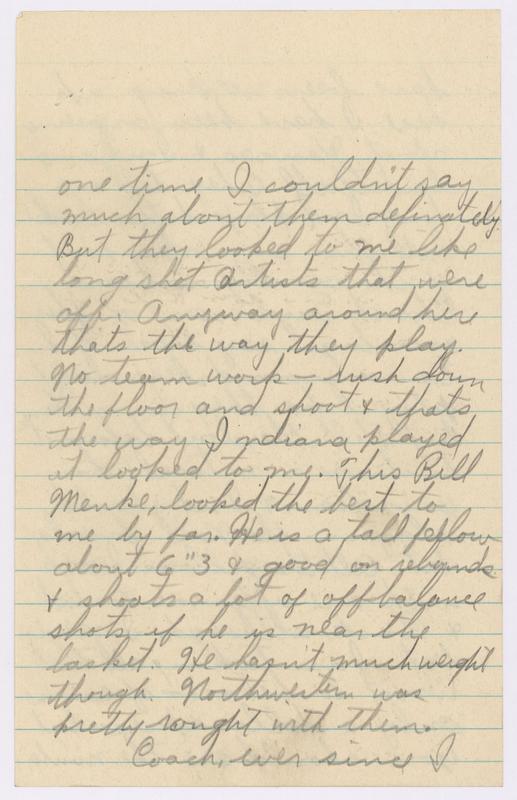 one time I couldn't say
much about them definately.
But they looked to me like
long shot artists that were
off. Anyway around here
thats the way they play.
No team work – rush down
the floor and shoot & thats
the way Indiana played
it looked to me. This Bill
Menke, looked the best to
me by far. He is a tall fellow
about 6"3 & good on rebounds
& shoots a lot of offbalance
shots if he is near the
basket. He hasn't much weight
though. Northwestern was
pretty rought with them.
Coach, ever since I